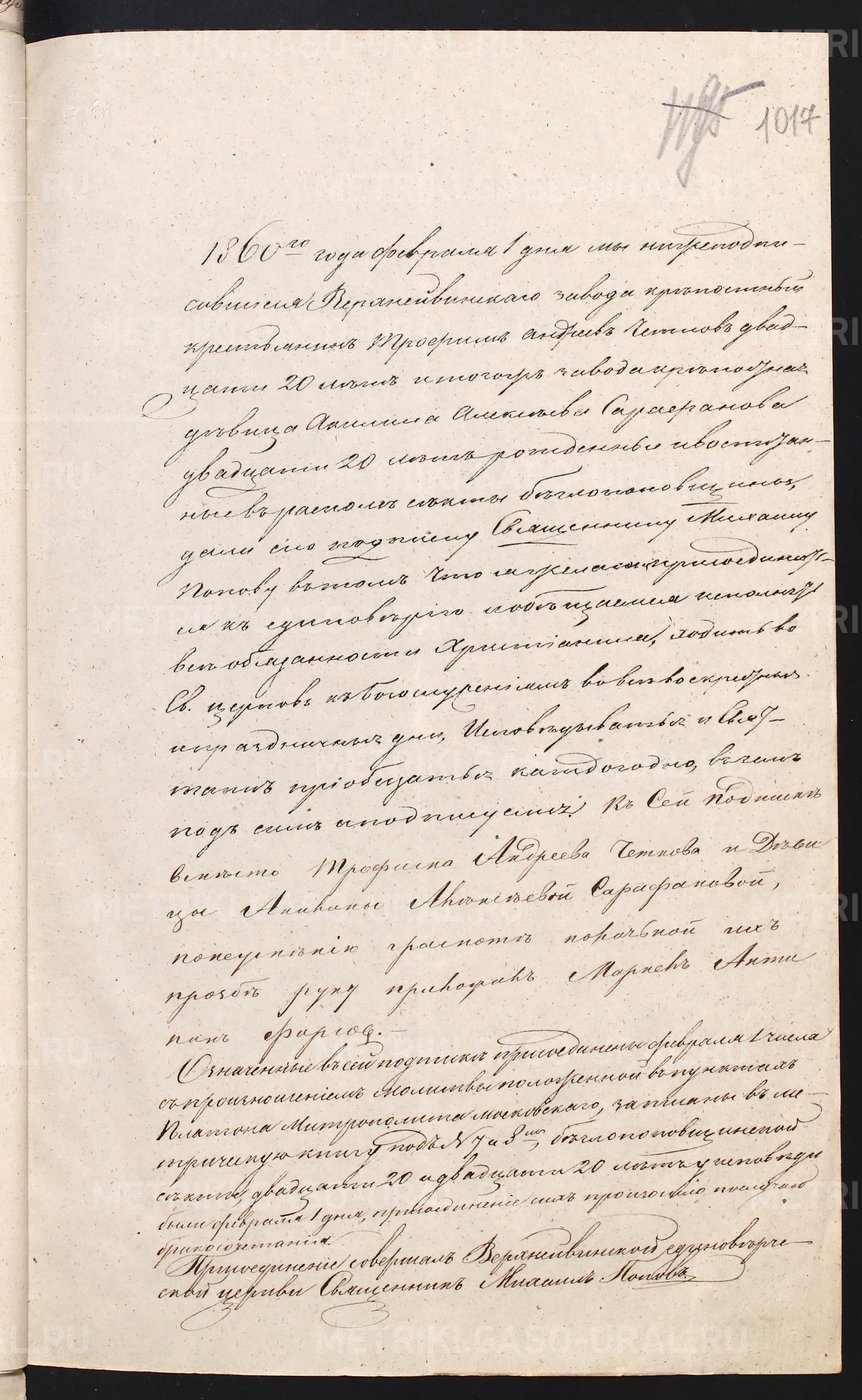 1017
1860го года февраля 1 дня мы нижеподпи-
савшіеся Верхнейвинскаго завода крѣпостный
крестьянинъ Трофимъ Андреевъ Четковъ двад-
цати 20 лѣтъ и тогожъ завода крѣпостная
дѣвица Акилина Алексѣева Сарафанова
двадцати 20 лѣтъ рожденные и воспитан-
ные въ расколѣ секты бѣглопоповщины,
дали сію подписку Священнику Михаилу
Попову въ томъ что мы желаемъ присоединить-
ся къ единовѣрію и обѣщаемся исполнять
всѣ обязанности Христіанина, ходить во
Св. церковь къ богослуженіямъ во всѣ воскресные
и праздничные дни, Исповѣдываться и Свят.
таинъ пріобщаться каждогодно, въ чемъ
подъ симъ и подписуемся. Къ Сей Подпискѣ
вмѣсто Трофима Андреева Четкова и Дѣви
цы Акилины Алексѣевой Сарафановой,
понеумѣнію грамотѣ поличьной ихъ
прозбѣ руку приложилъ
Означенные въ сей подпискѣ присоединены февраля 1 числа
съ произношеніемъ молитвы положенной въ пунктахъ
Платона Митрополита московскаго, записаны въ ме-
трическую книгу подъ N 7 и 8мъ, бѣглопоповщинской
секты, двадцати 20 и двадцати 20 лѣтъ у исповѣди
были февраля 1 дня, присоединеніе ихъ произошло по случаю
бракосочетанія.
Присоединеніе совершалъ Верхнейвинской единовѣрче-
ской церкви Священникъ Михаилъ Поповъ